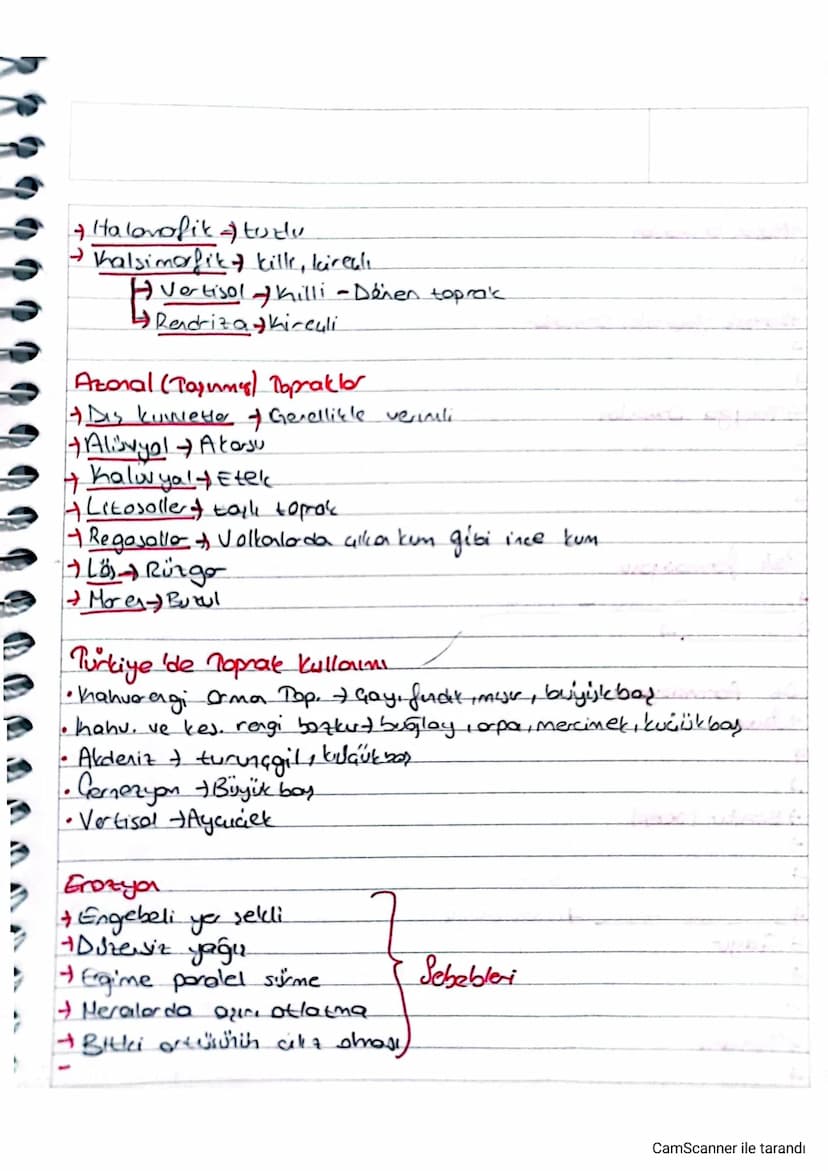 → Halomofik → tuzlu
→ Kalsimorfik → killi, kireçli
→ Vertisol → Killi - Dönen toprak
→ Rendriza → Kireçli
Azonal (Taşınmış) Topraklar
→ Dış kuvvetler → Genellikle verimli
→ Alüvyal → Akarsu
→ Kolüvyal → Etek
→ Litosoller → taşlı toprak
→ Regosoller → Volkanlarda çıkan kum gibi ince kum
→ Lös → Rüzgar
→ Moren → Buzul
Türkiye'de Toprak Kullanımı
• Kahverengi Orman Top. → Çay, fındık, mısır, büyükbaş
• kahv. ve kes. rengi bozkır → buğday, arpa, mercimek, küçükbaş
• Akdeniz → turunçgil, küçükbaş
• Çernezyom → Büyük baş
• Vertisol → Ayçiçek
Erozyon
→ Engebeli yer şekli
→ Düzensiz yağış
→ Eğime paralel sürme
Sebebleri
→ Meralarda aşırı otlatma
→ Bitki örtüsünün cılız olması
CamScanner ile tarandı